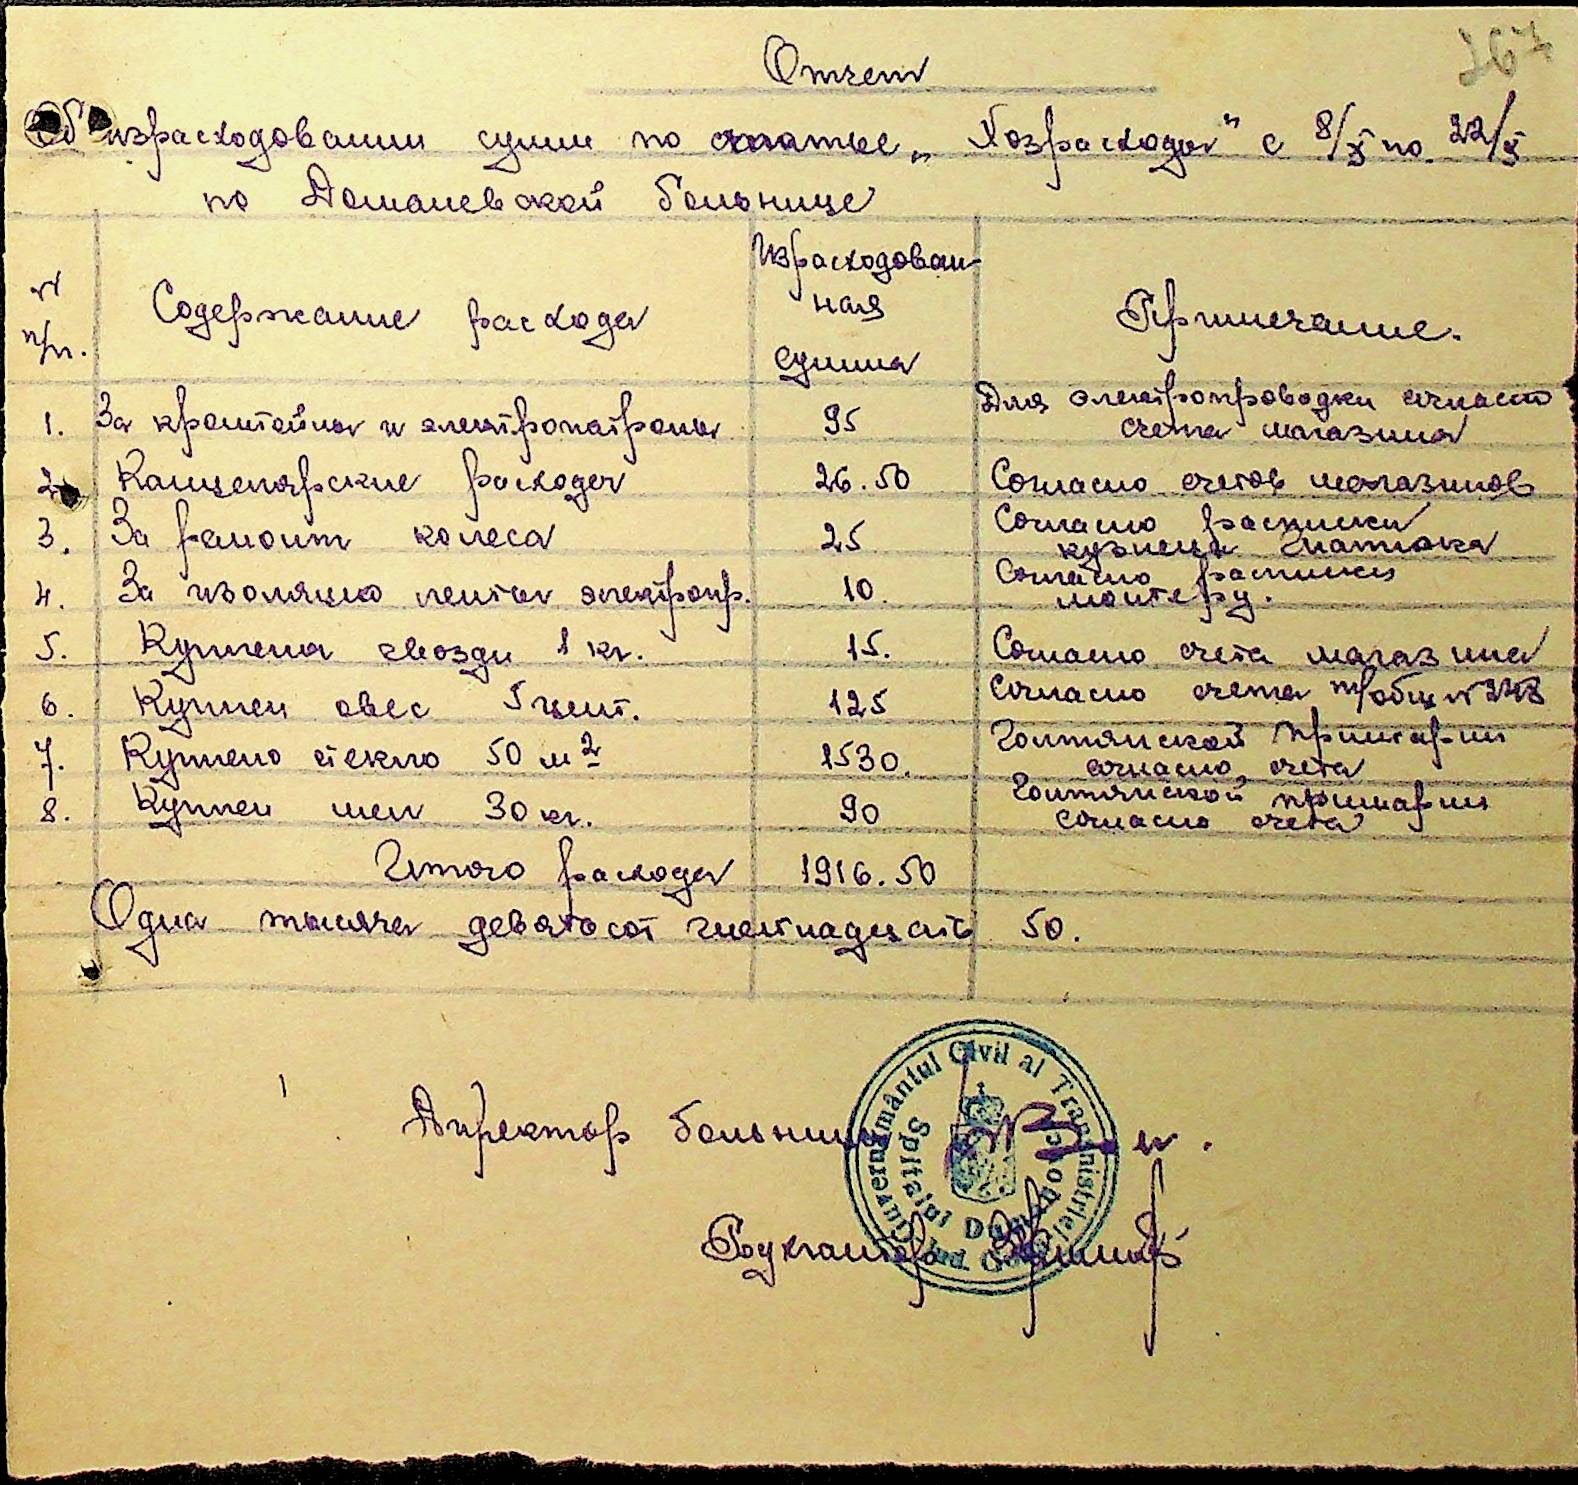 267
Отчет
Об израсходовании сумм по статье „Хозрасходы" с 8/X по 22/X
по Доманевской больнице
№ п/п. Содержание расхода Израсходован-ная сумма Примечание.
1. За кронштейны и электропатроны 95 Для электропроводки согласно счета магазина
2. Канцелярские расходы 26.50 Согласно счетов магазинов
3. За ремонт колеса 25 Согласно расписки кузнеца
4. За изоляцию ленты электропр. 10. Согласно расписки монтеру.
5. Куплена гвозди 1 кг. 15. Согласно счета магазина
6. Куплен овес 5 цент. 125 Согласно счета т/общ №
7. Куплено стекло 50 м2 1530. примарии согласно счета
8. Куплен мел 30 кг. 90 примарии согласно счета
Итого расхода 1916.50
Одна тысяча девятьсот шестнадцать 50.
Директор больницы
Бухгалтер
Guvernământul Civil al Transnistriei
Spitalul
Jud.